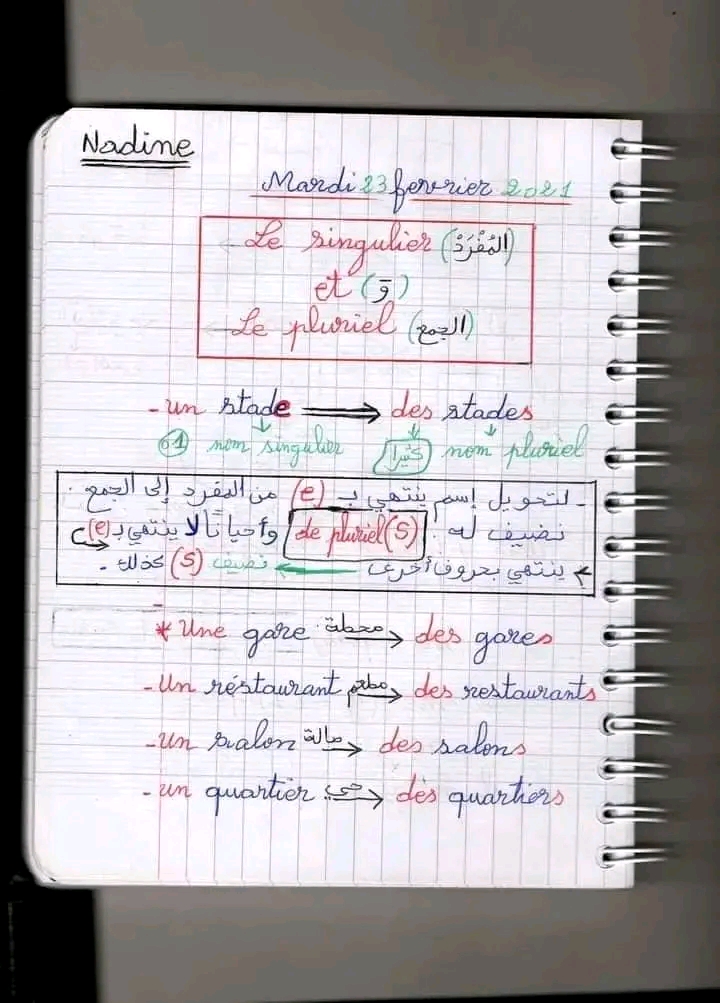 Nadine
Mardi 23 fevrier 2021
Le singulier (المُفْرَدْ)
et (وَ)
Le pluriel (الجمع)
- un stade → des stades
01 nom singulier كثيرا nom pluriel
- لتحويل إسم ينتهي بـ (e) من المفرد إلى الجمع.
نضيف له : de pluriel (s) وأحيانًا لا ينتهي بـ (e)
ينتهي بحروف أخرى ← نضيف (s) كذلك.
* Une gare محطة → des gares
- Un réstaurant مطعم → des restaurants
- un salon صالة → des salons
- un quartier حي → des quartiers